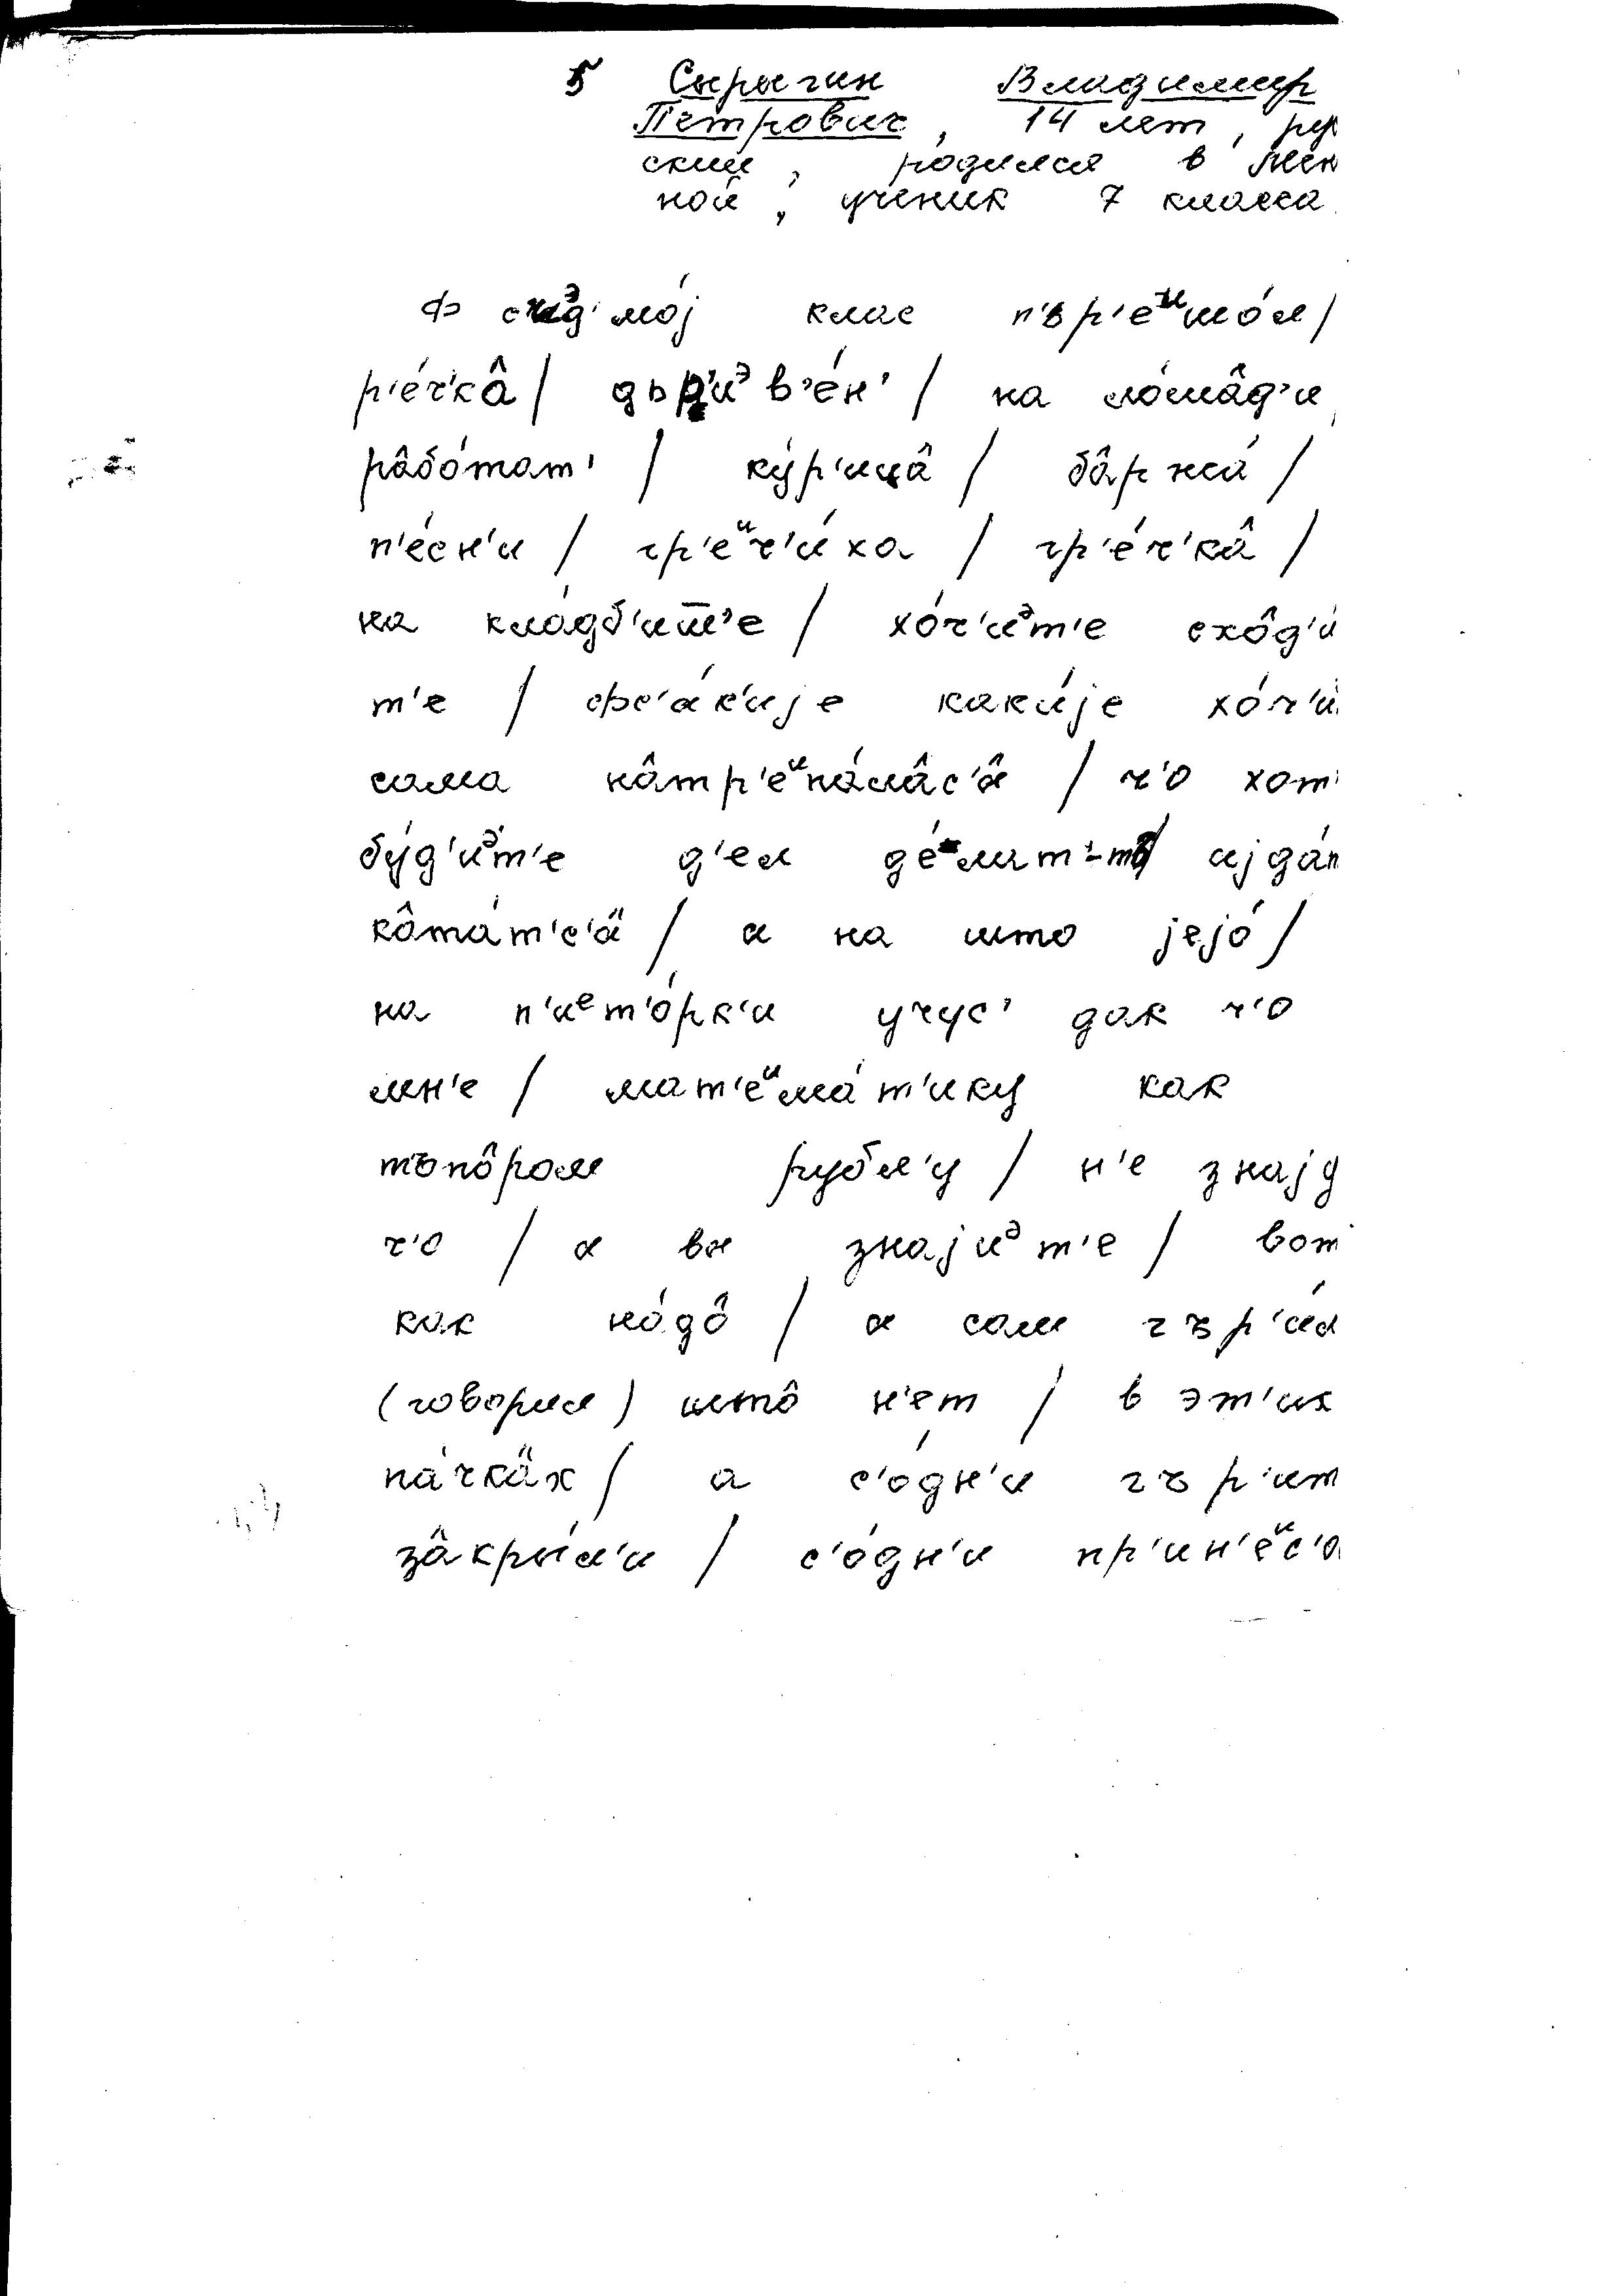 5 Сырыгин Владимир
Петрович, 14 лет, рус
ский, родился в Мен
ной, ученик 7 класса
Ф с'иэд'мо́j клас п'ьр'еишо́л /
р'е́ч'кâ / дьр'иэв'е́н' / на ло́шâд'и
рâбо́тат' / ку́р'ицâ / бâржа́ /
п'е́с'н'и / гр'еич'и́ха / гр'е́ч'кâ /
на кла́дб'иш̅'е / хо́ч'иэт'е схôд'и́
т'е / фс'а́к'иjе каки́jе хо́ч'и
сама нâтр'еипа́лâс'â / ч'о хот'
бу́д'иэт'е д'ел де́лат'-тъ / аjда́
кôта́т'с'ä / а на што jejо́ /
на п'иет'о́рк'и учус' дак ч'о
мн'е / мат'еима́т'ику как
тъпôром рубл'у / н'е знаjу
ч'о / а вы знаjиэт'е / вот
как на́дô / а сам гър'ил
(говорил) штô н'ет / в эт'их
па́чкäх / а с'о́дн'и гър'ит
зâкры́л'и / с'о́дн'и пр'ин'еис'о